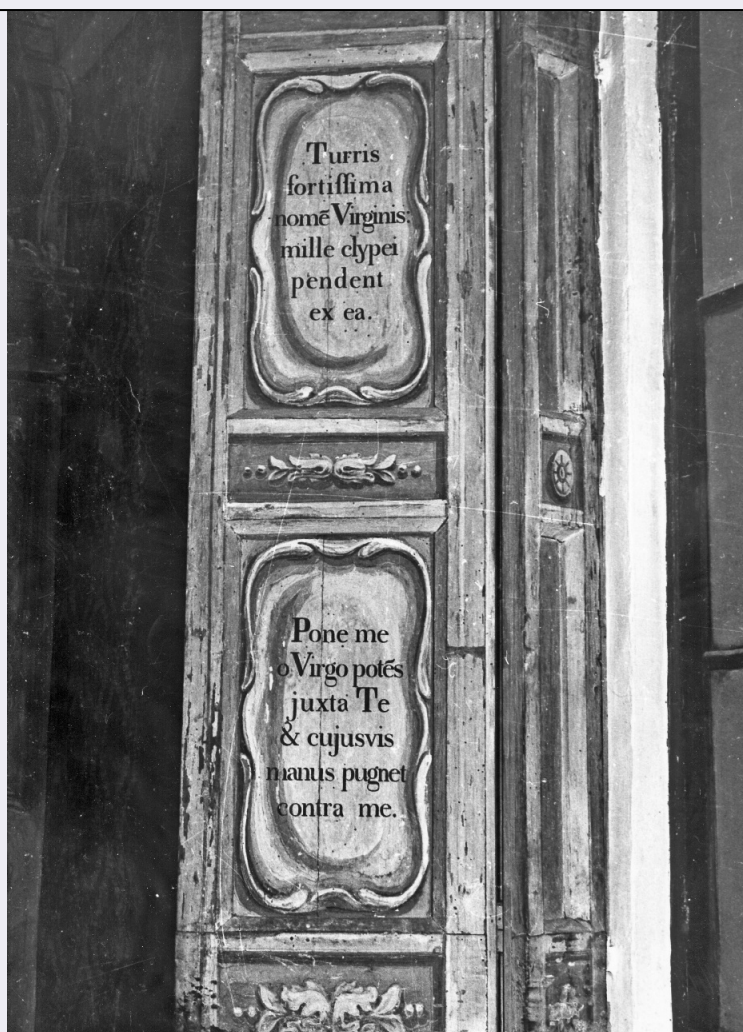 Turris
fortiſſima
nomē Virginis:
mille clypei
pendent
ex ea.
Pone me
o Virgo potēs
juxta Te
& cujusvis
manus pugnet
contra me.